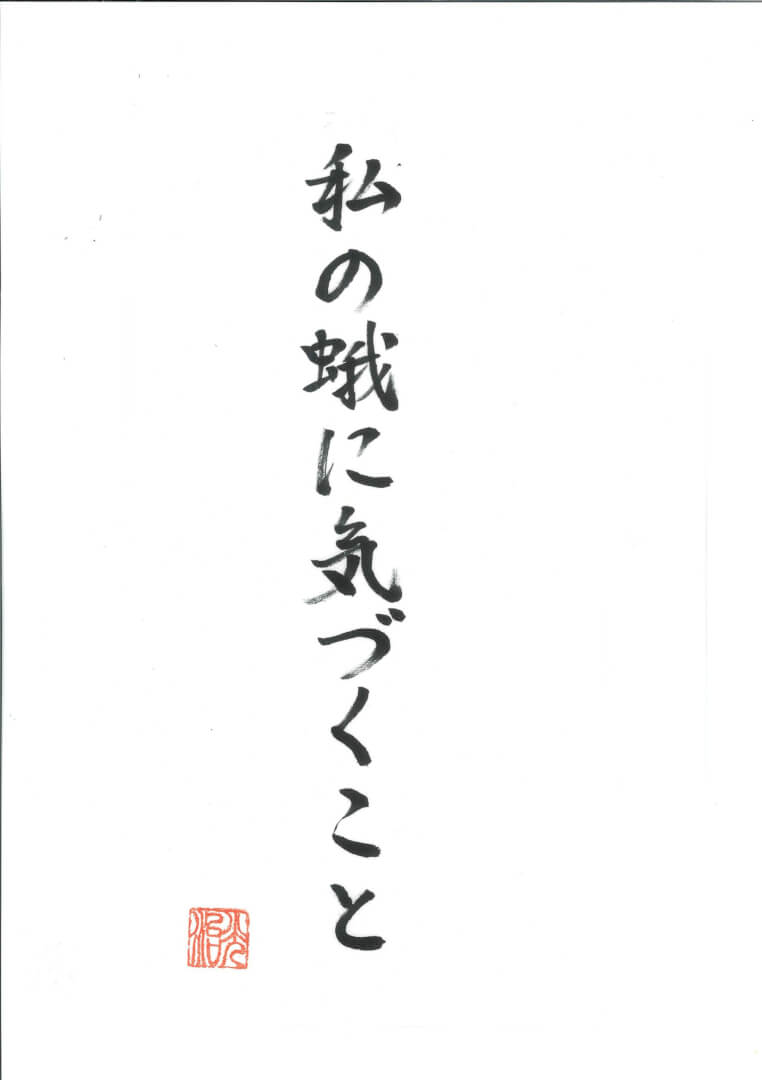 私の蛾に気づくこと